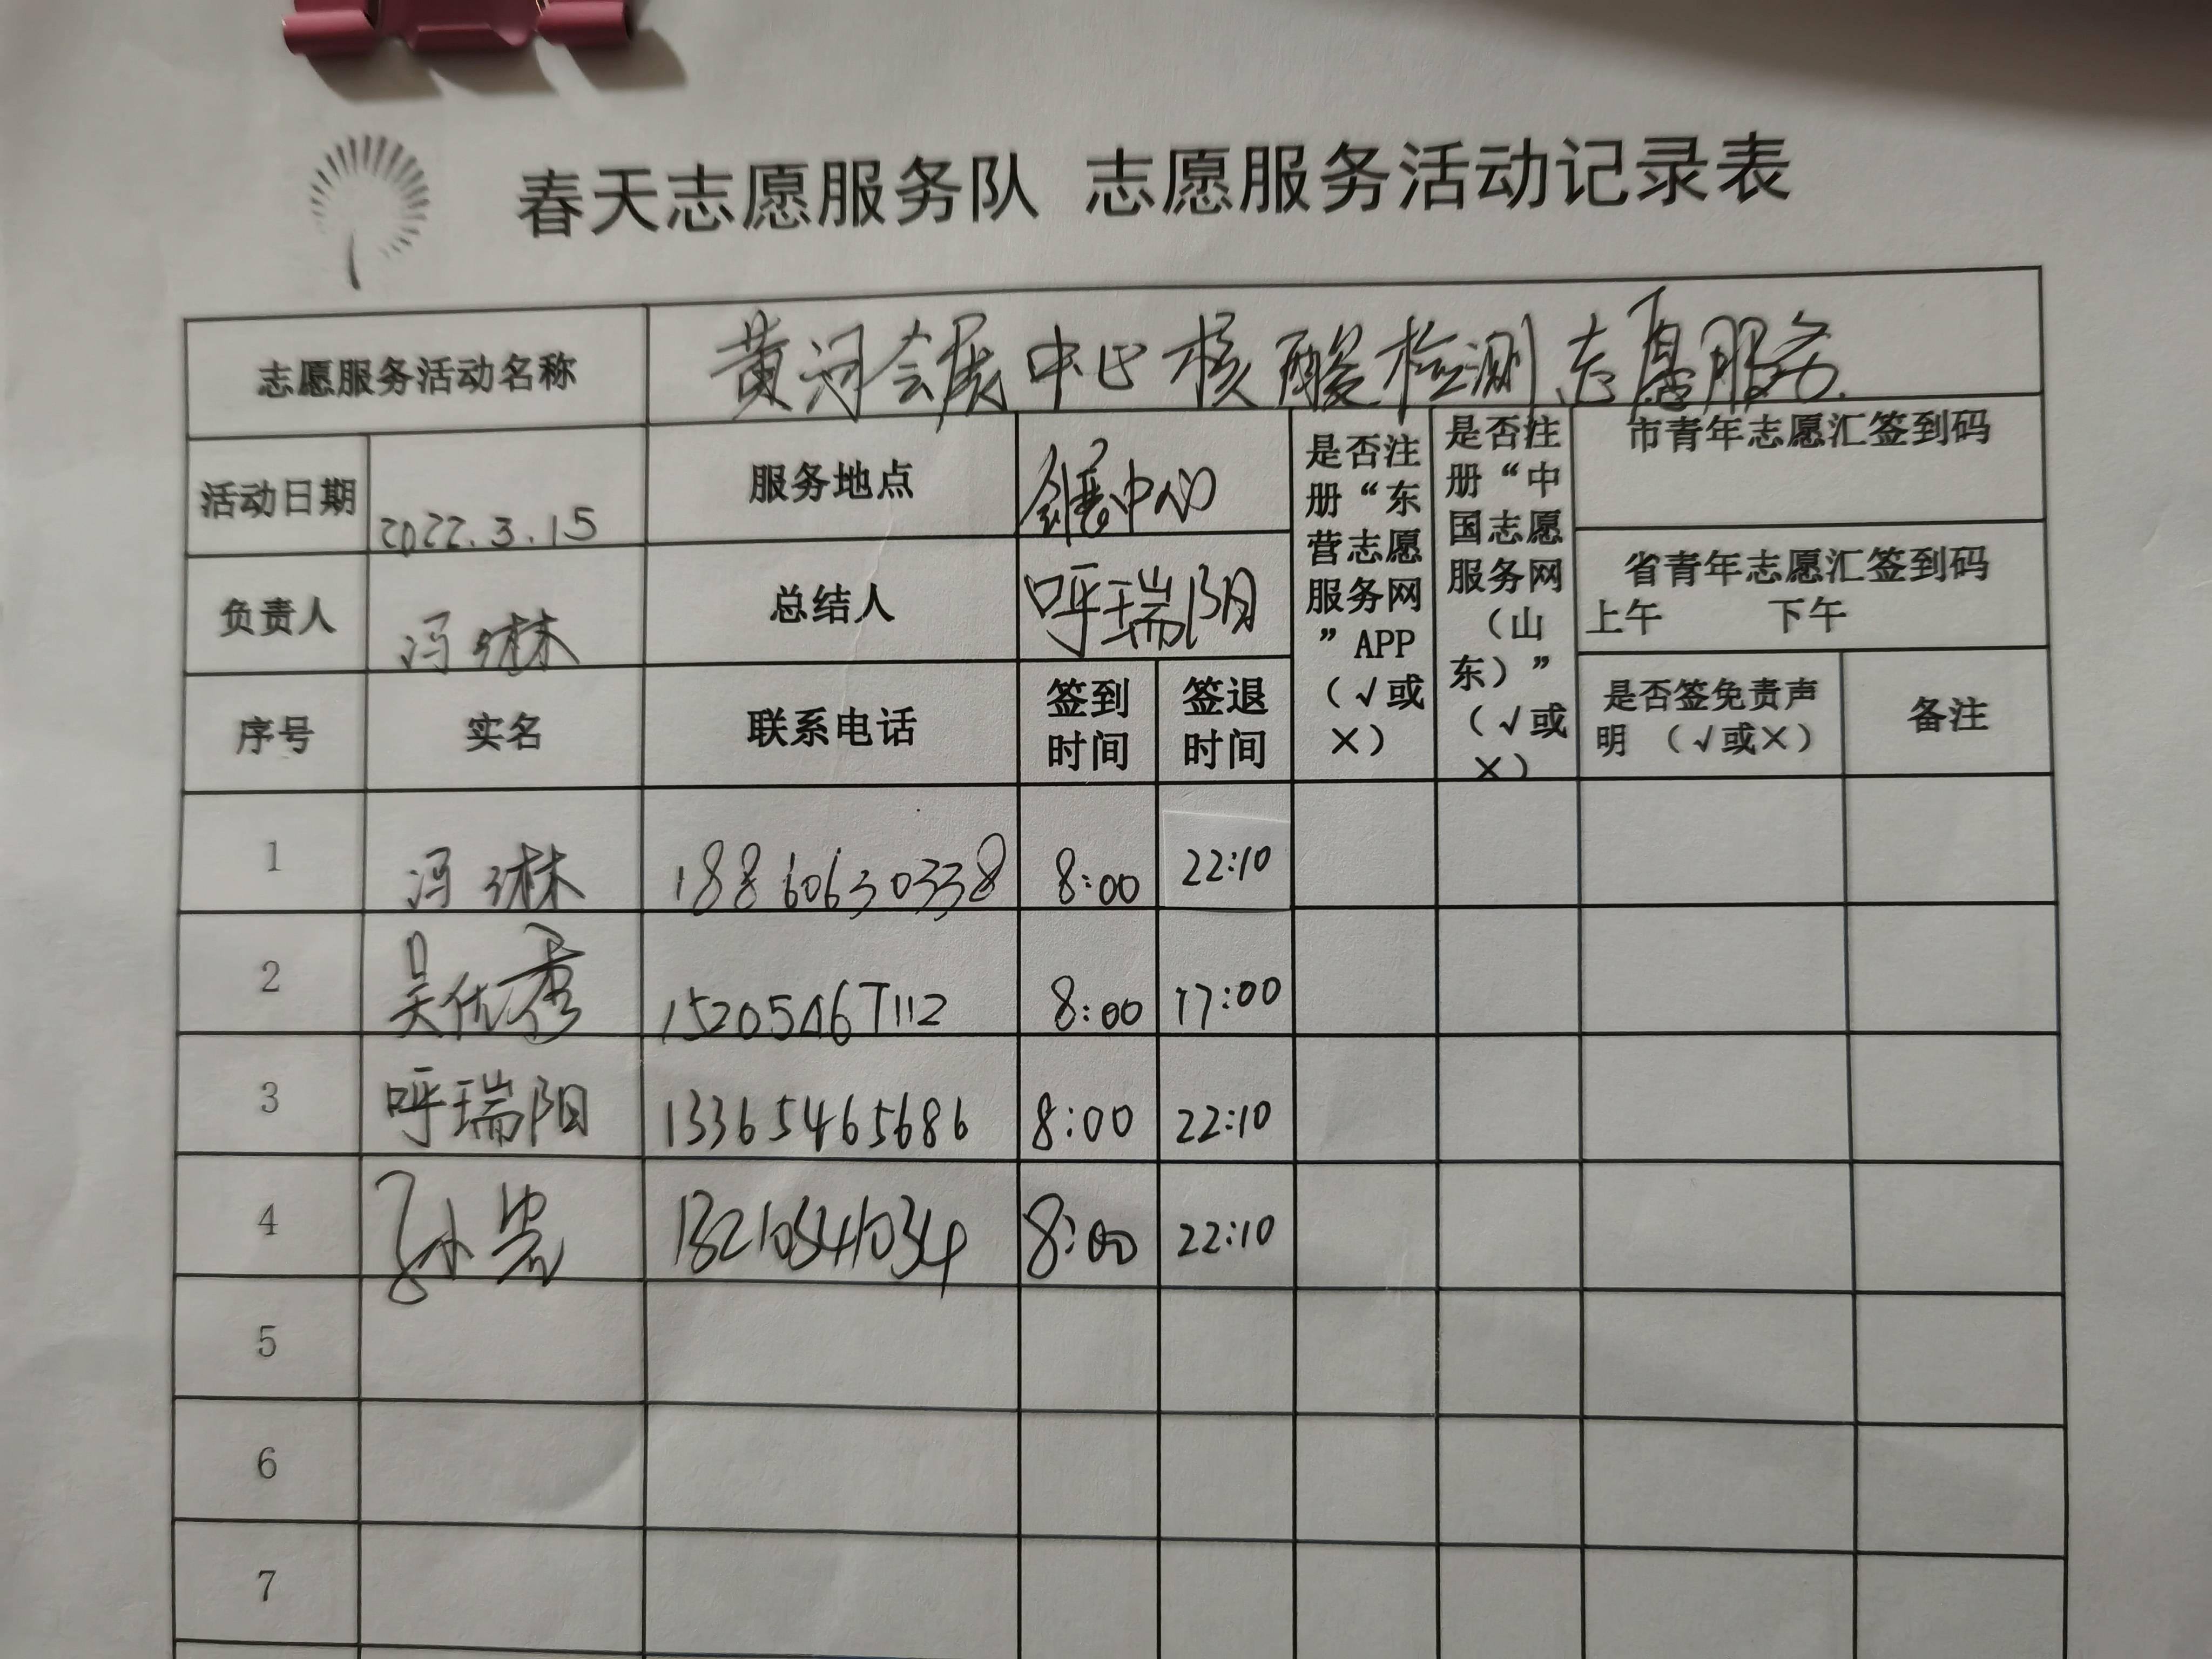 春天志愿服务队 志愿服务活动记录表
志愿服务活动名称 黄河会展中心核酸检测志愿服务
活动日期 2022.3.15 服务地点 会展中心
是否注册“东营志愿服务网”APP（√或×）
是否注册“中国志愿服务网（山东）”（√或×）
市青年志愿汇签到码
省青年志愿汇签到码
上午 下午
负责人 冯琳 总结人 呼瑞阳
序号 实名 联系电话 签到时间 签退时间 是否签免责声明（√或×） 备注
1 冯琳 18860630338 8:00 22:10
2 吴优秀 15205467112 8:00 17:00
3 呼瑞阳 13365465686 8:00 22:10
4 孙 8:00 22:10
5
6
7